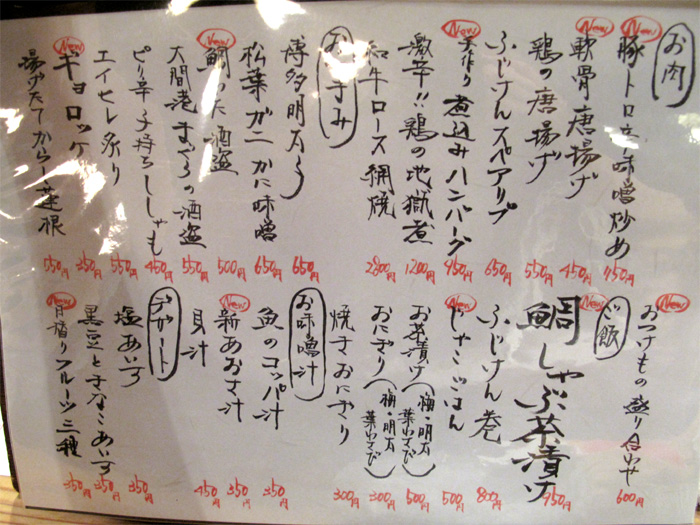 お肉
New
豚トロ辛味噌炒め 750円
New
軟骨唐揚げ 450円
鶏の唐揚げ 550円
ふじけんスペアリブ 650円
New
手作り煮込みハンバーグ 950円
激辛!!鶏の地獄煮 1200円
和牛ロース網焼 2800円
おつまみ
博多明太子 650円
松葉ガニかに味噌 650円
New
鯛わた酒盗 500円
大間港まぐろの酒盗 550円
ピリ辛子持ちししゃも 450円
エイヒレ炙り 550円
New
ギョロッケ 350円
揚げたてからし蓮根 550円
New
おつけもの盛り合わせ 600円
ご飯
New
鯛しゃぶ茶漬け 950円
ふじけん巻 800円
New
じゃこごはん 500円
お茶漬け(梅・明太 葉わさび) 500円
おにぎり(梅・明太 葉わさび) 300円
焼きおにぎり 300円
お味噌汁
魚のコッパ汁 350円
New
新あおさ汁 350円
貝汁 450円
デザート
塩あいす 350円
黒豆ときなこあいす 350円
New
月替りフルーツ三種 350円